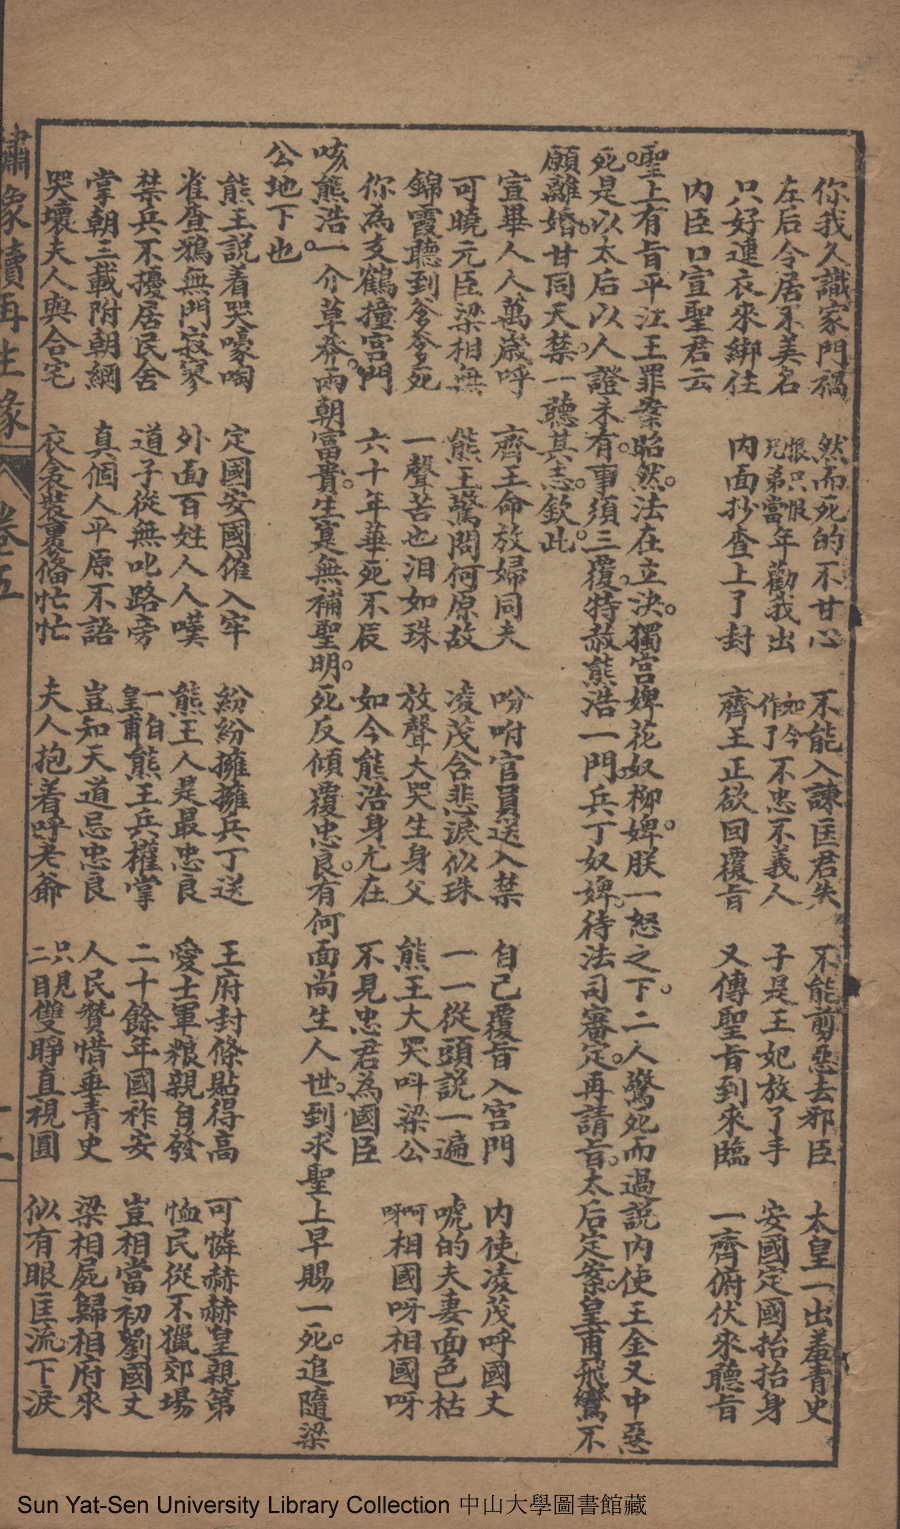 你我久識家門禍　然而死的不甘心　不能入諫匡君失　不能剪惡去邪臣　太皇一出羞青史
左后令居不美名　恨只恨兄弟當年勸我出　如今作了不忠不義人　子是王妃放了手　安國定國抬抬身
只好連衣來綁住　內面抄查上了封　齊王正欲回覆旨　又傳聖旨到來臨　一齊俯伏來聽旨
內臣口宣聖君云
聖上有旨平江王罪案昭然。法在立決。獨宮婢花奴柳婢。朕一怒之下。二人驚死而過說內使王金又中惡
死。是以太后以人證未有。事須三覆。特赦熊浩一門。兵丁奴婢。待法司審定。再請旨。太后定案。皇甫飛鸞不
願離婚。甘同天禁。一聽其志。欽此。
宣畢人人萬歲呼　齊王命放婦同夫　吩咐官員送入禁　自己覆旨入宮門　內使凌茂呼國丈
可曉元臣梁相無　熊王驚問何原故　凌茂含悲淚似珠　一一從頭說一遍　唬的夫妻面色枯
錦霞聽到爹爹死　一聲苦也泪如珠　放聲大哭生身父　熊王大哭呌梁公　啊呀相國呀相國呀
你為支鶴撞宮門　六十年華死不辰　如今熊浩身尤在　不見忠君為國臣
咳熊浩一介草莽。兩朝富貴。生寔無補聖明。死反傾覆忠良。有何面尚生人世。到求聖上早賜一死。追隨梁
公地下也
熊王説着哭嚎啕　定國安國催入牢　紛紛擁擁兵丁送　王府封條貼得高　可憐赫赫皇親第
雀查鴉無門寂寥　外面百姓人人嘆　熊王人是最忠良　愛士軍粮親自發　恤民從不獵郊場
禁兵不擾居民舍　道子從無叱路旁　一自皇甫熊王兵權掌　二十餘年國祚安　豈相當初劉國丈
掌朝三載附朝綱　真個人平原不語　豈知天道忌忠良　人民贊惜垂青史　梁相屍歸相府來
哭壞夫人與合宅　衣衾裝裹偹忙忙　夫人抱着呼老爺　只見二目雙睜直視圓　似有眼匡流下淚
繡像續再生緣　卷五
Sun Yat-Sen University Library Collection 中山大學圖書館藏